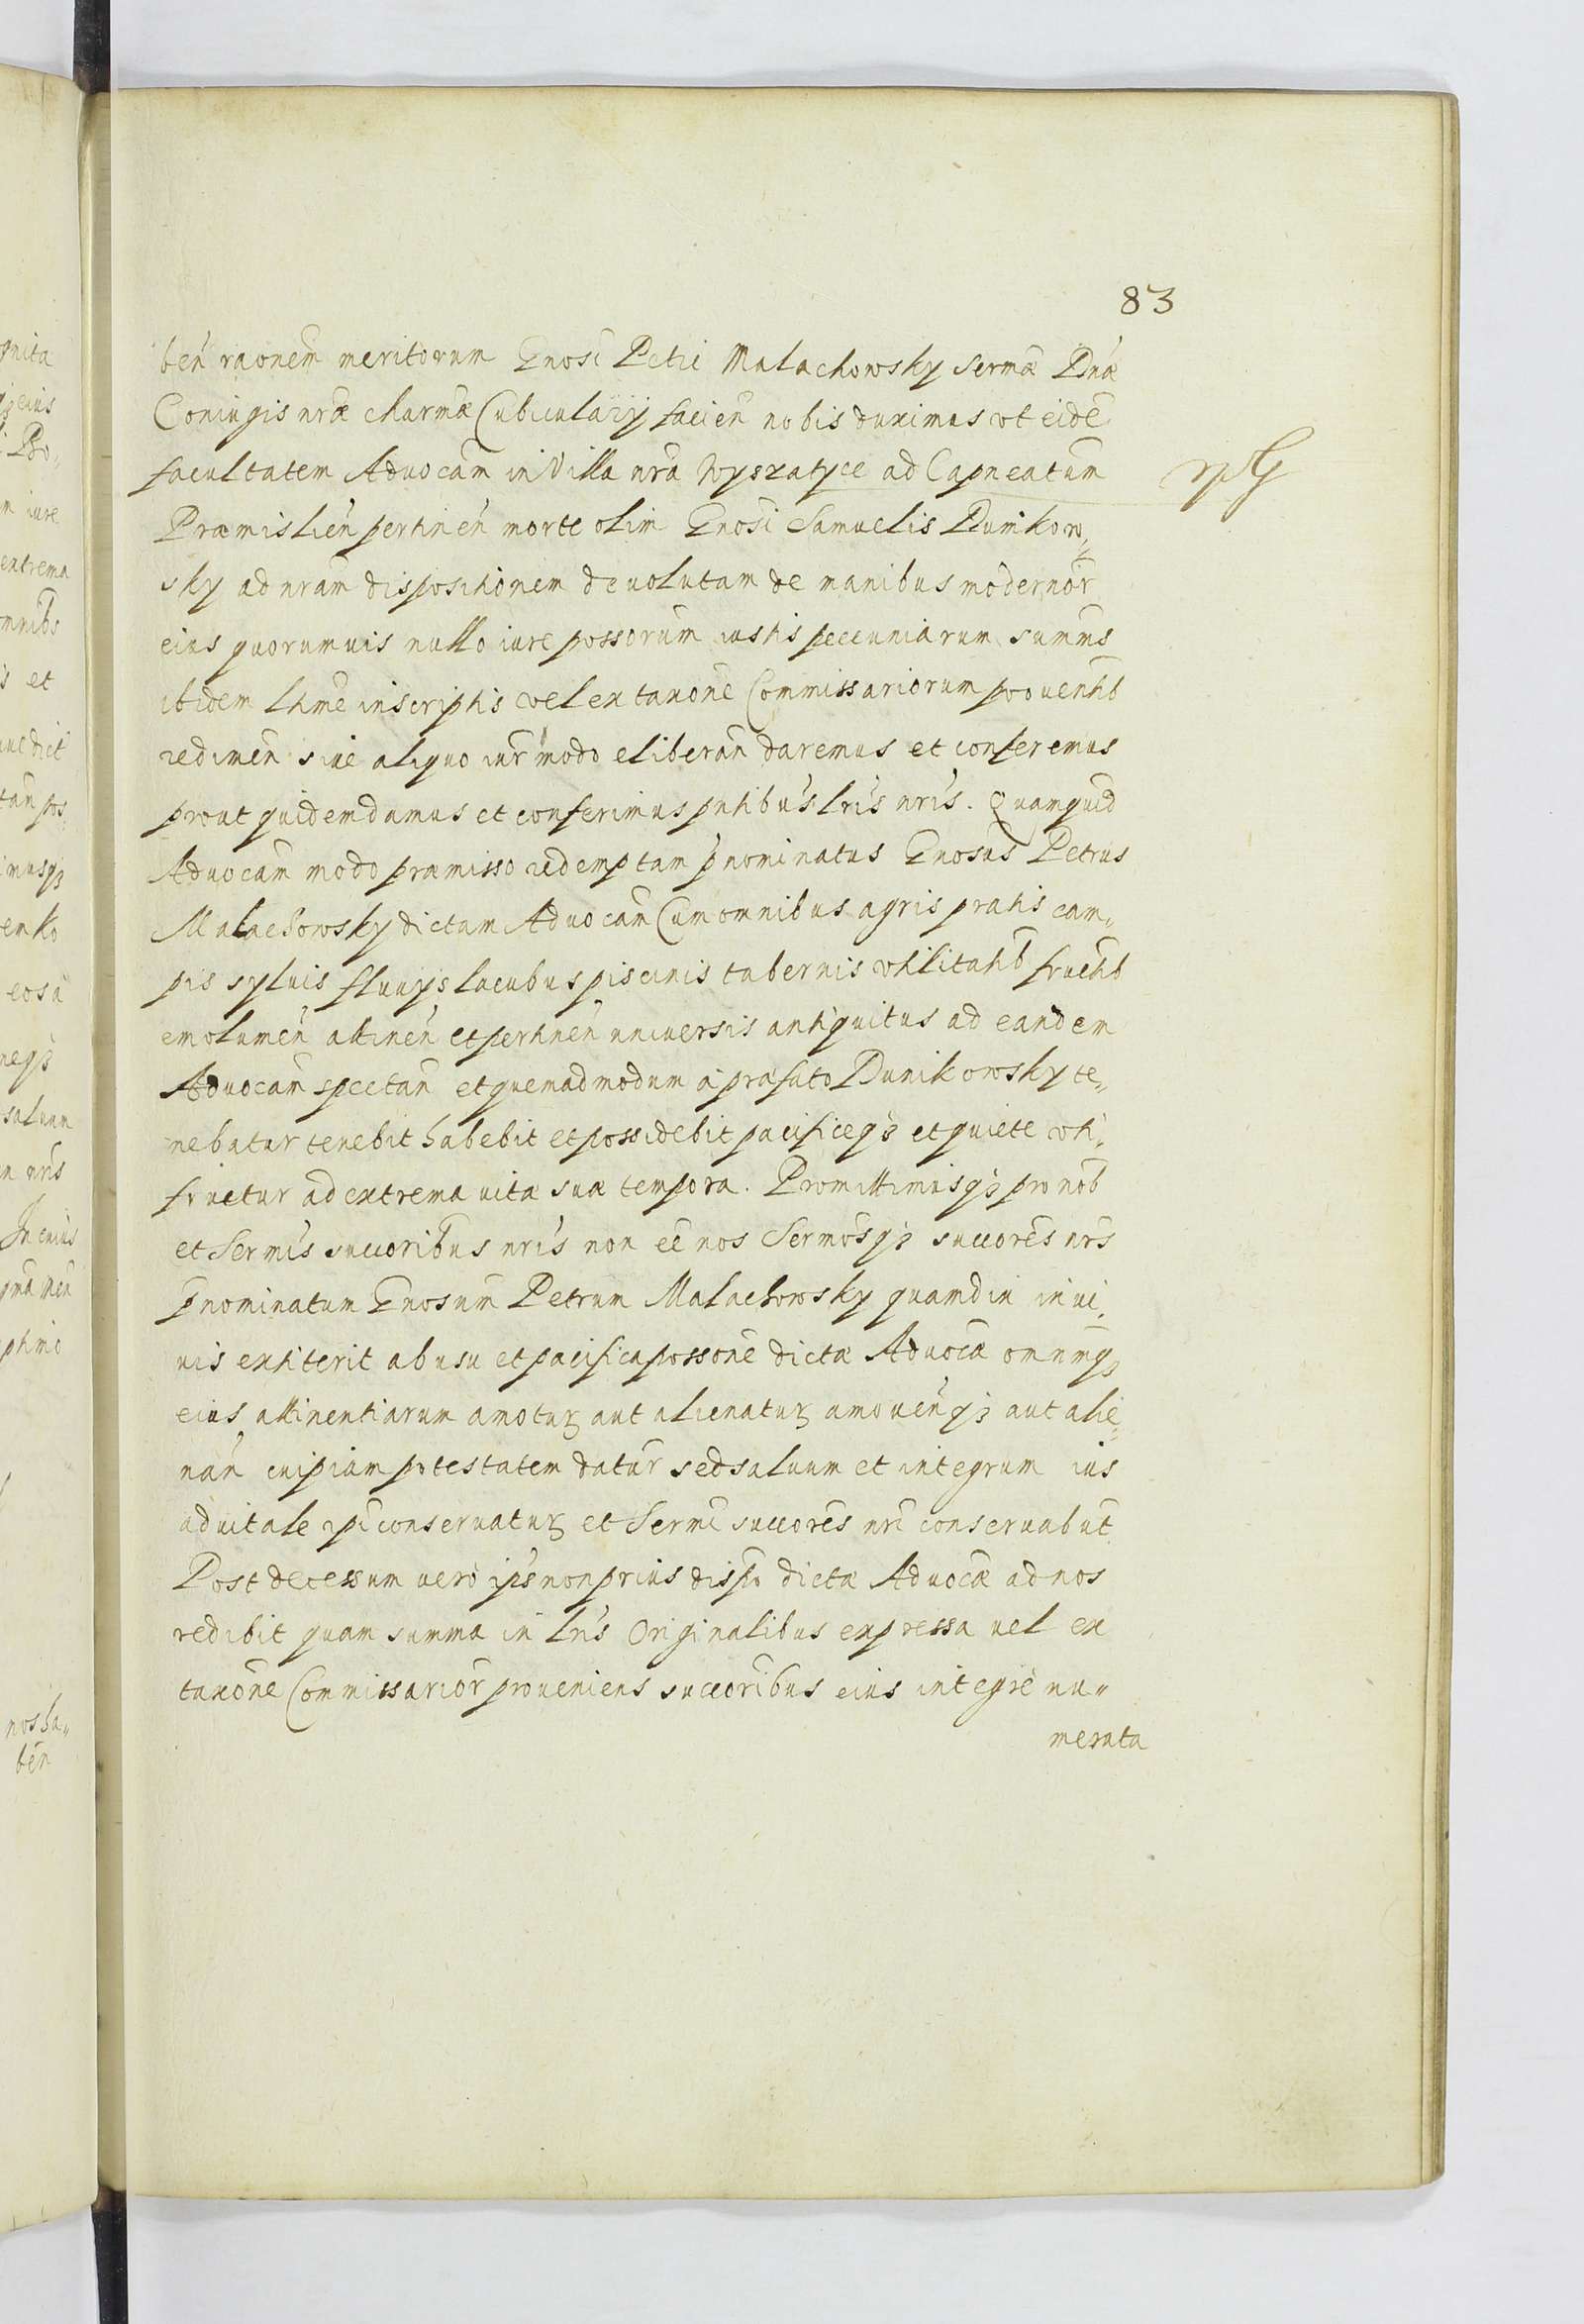 83
ben̄ raonem̄ meritorum Gnosi Petri Malachowsky Sermæ Dnæ
Coniugis nræ charmæ Cubicularij facien̄ nobis duximus vt eidē
facultatem Aduocam̄ in Villa nra Wyszatyce ad Capneatum
Præmislien̄ pertinen̄ morte olim Gnosi Samuelis Dunikow„
sky ad nram dispositionem deuolutam de manibus modernor̄
eius quorumuis nullo iure possorum iustis pecuniarum summs
ibidem lhme inscriptis vel ex taxone Commissariorum prouentib
redimen̄ siue aliquo iur modo eliberan̄ daremus et conferemus
prout quidem damus et conferimus pntibus lris nris. Quamquid
Aduocam̄ modo præmisso redemptam pnominatus Gnosus Petrus
Malachowsky dictam Aduocam̄ Cum omnibus agris pratis cam„
pis syluis fluuijs lacubus piscinis tabernis vtilitatib fructib
emolumen̄ attinen̄ et pertinen̄ vniuersis antiquitus ad eandem
Aduocam̄ spectan̄ et quemadmodum a præfato Dunikowsky te„
nebatur tenebit habebit et possidebit pacificeqȝ et quiete vti„
fruetur ad extrema vitæ suæ tempora. Promittimusqȝ pro nob
et Sermis succoribus nris non ee nos Sermosqȝ succores nrs
pnominatum Gnosum Petrum Malachowsky quamdiu in vi„
uis extiterit ab usu et pacifica possone dictæ Aduocæ omnmqȝ
eius attinentiarum amoturȝ aut alienaturȝ amouen̄qȝ aut alie„
nan̄ cuipiam potestatem datur̄ sed saluum et integrum ius
aduitale ipi conseruaturȝ et Sermi succores nri conseruabut
Post decessum vero ips non prius dispo dictæ Aduocæ ad nos
redibit quam summa in lris Originalibus expressa vel ex
taxone Commissarior̄ proueniens succoribus eius integre nu„
merata